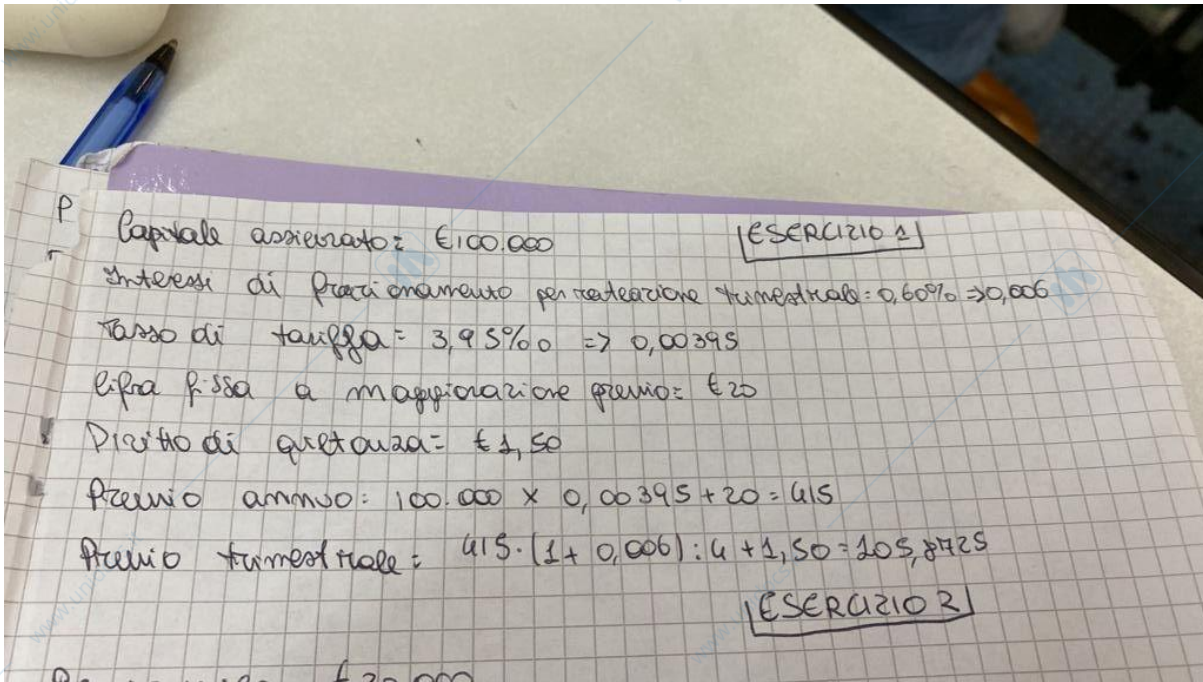 P
Capitale assicurato: €100.000 ESERCIZIO 1
Interessi di frazionamento per rateazione trimestrale: 0,60% => 0,006
Tasso di tariffa = 3,95%0 => 0,00395
Cifra fissa a maggiorazione premio: €20
Diritto di quietanza = €1,50
Premio annuo: 100.000 x 0,00395 + 20 = 415
Premio trimestrale: 415 · (1 + 0,006) : 4 + 1,50 = 105,8725
ESERCIZIO 2